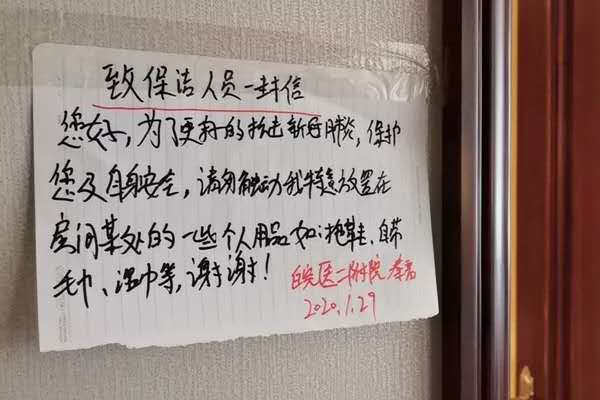 致保洁人员一封信
您好,为了更好的抗击新好肺炎,保护
您及自身安全,请勿触动我特意放置在
房间某处的一些个人用品如:拖鞋、自带
毛巾、浴巾等,谢谢!
医二附院
2020.1.29